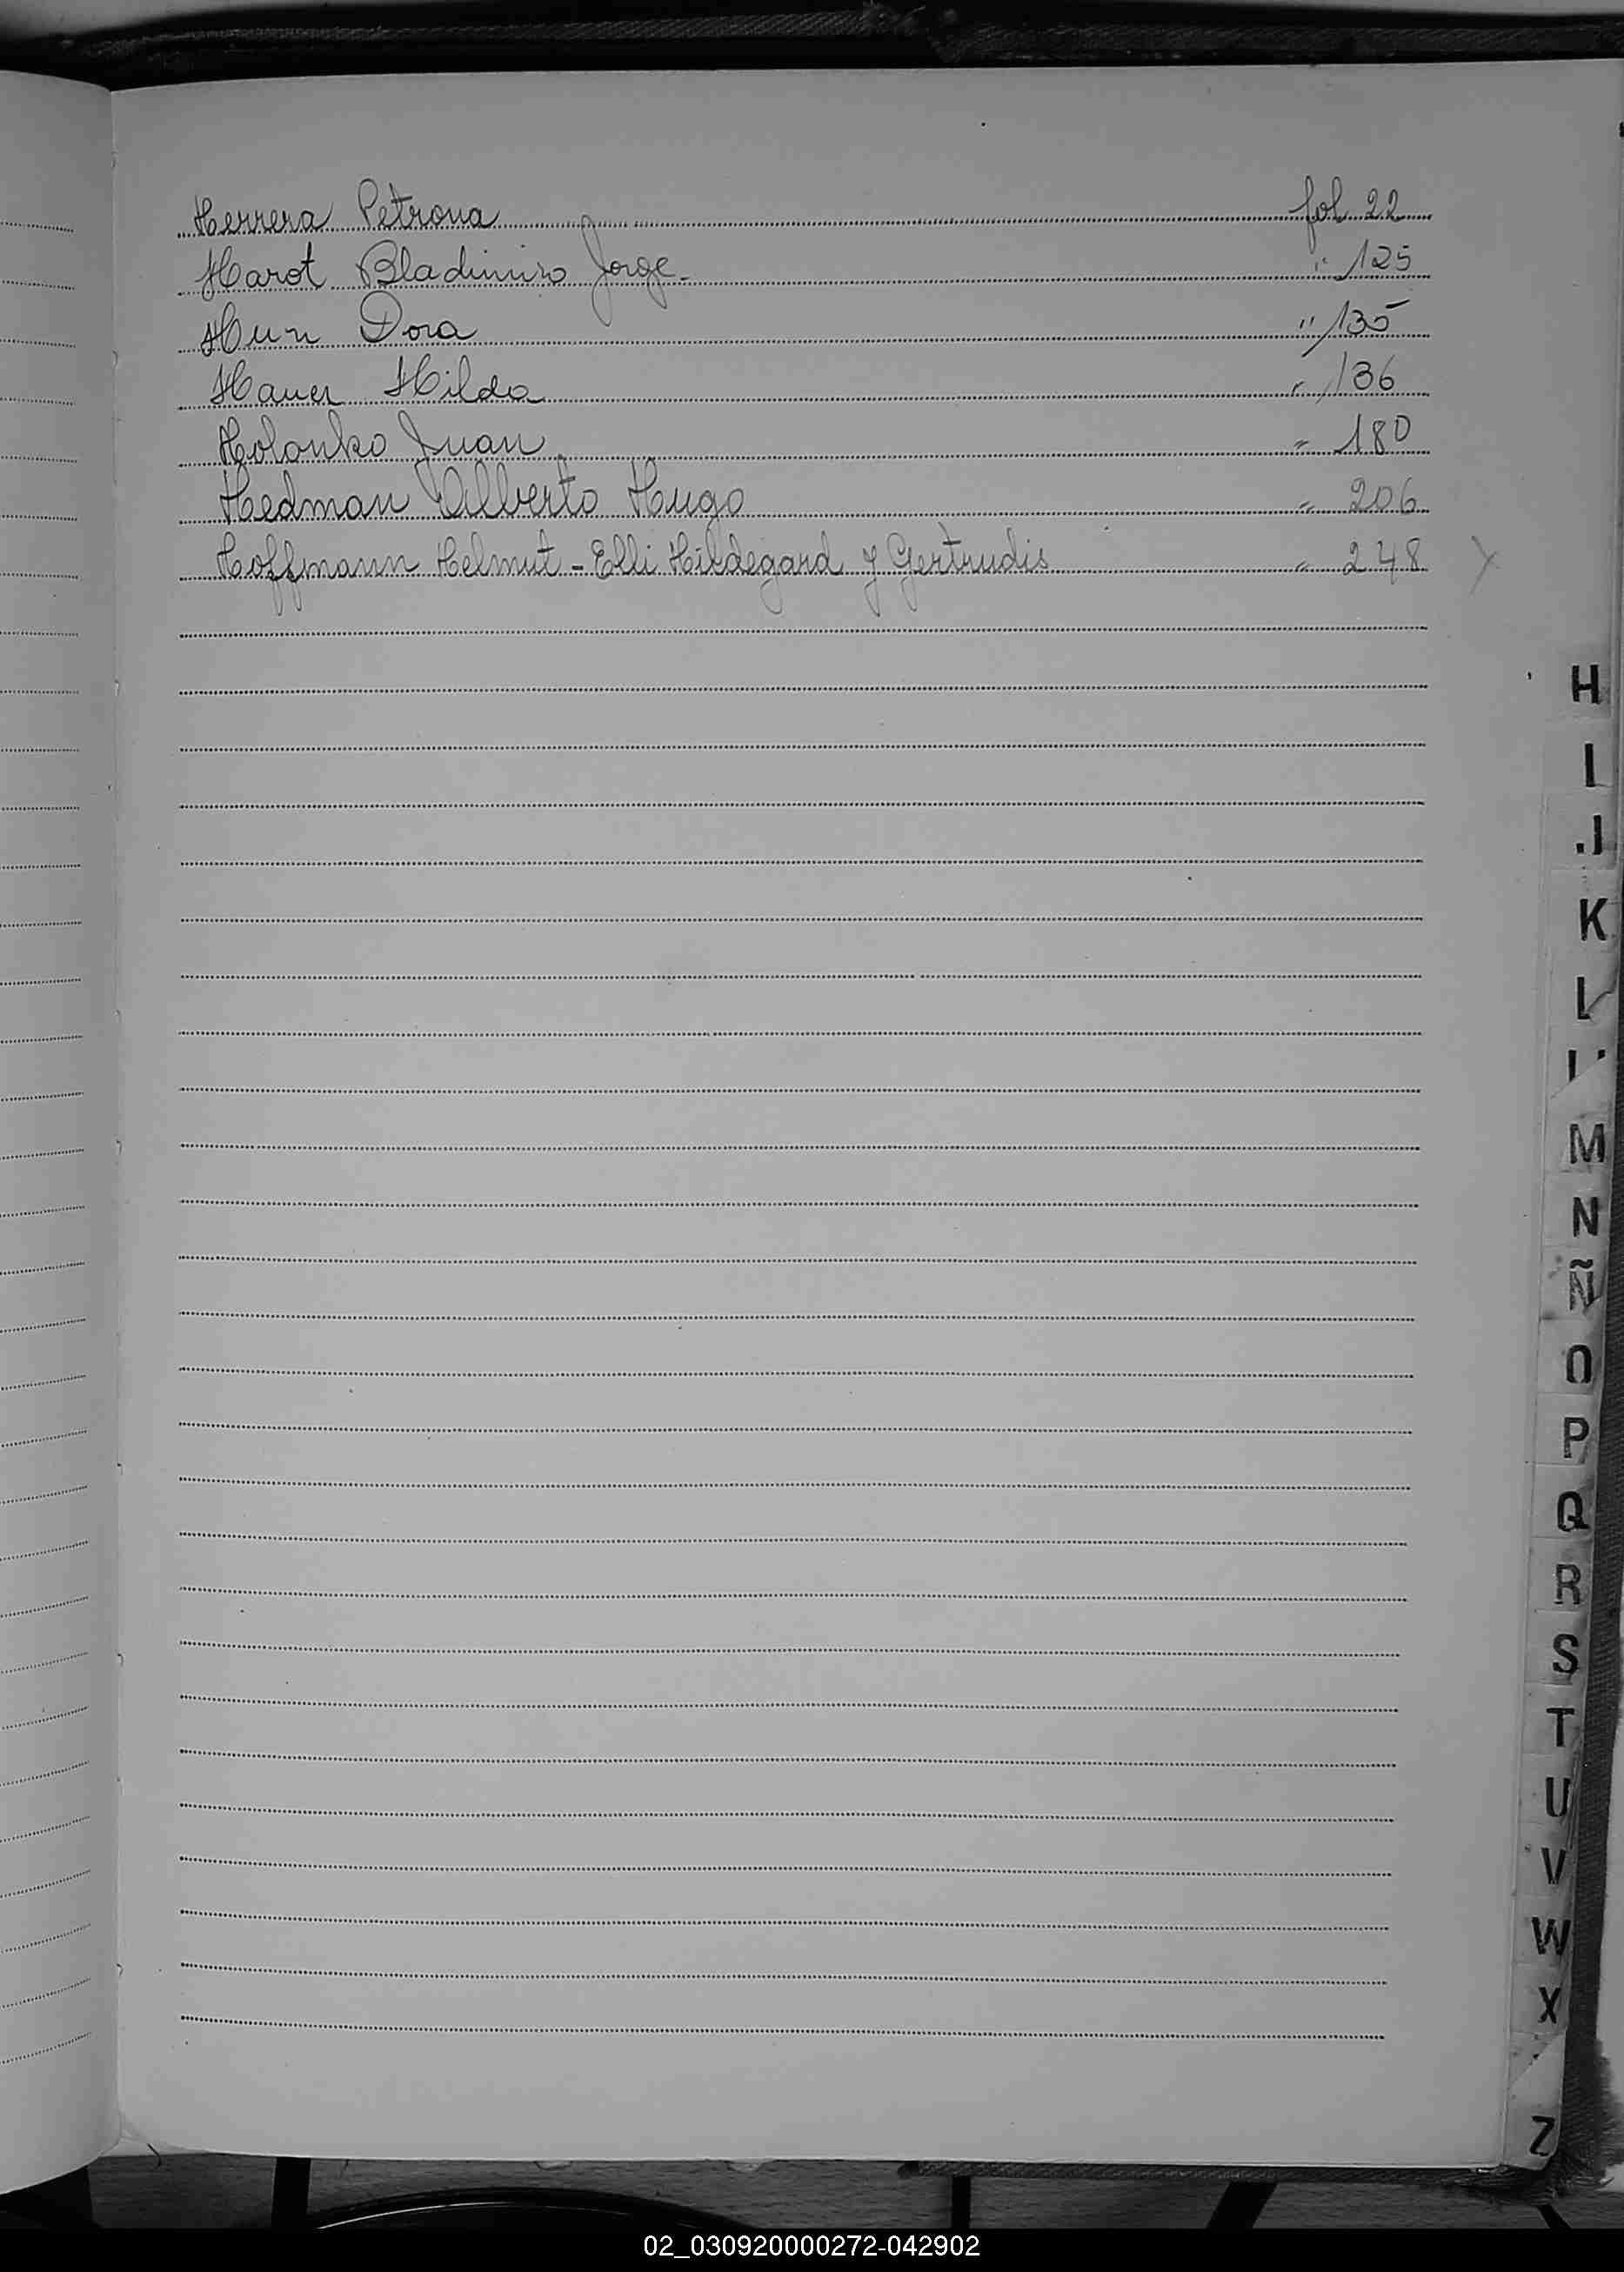 Herrera Petrona fol 22
Harot Bladimiro Jorge. " 125
Hun Dora " 135
Hauer Hilda " 136
Holonko Juan " 180
Hedman Alberto Hugo " 206
Hoffmann Helmut - Elli Hildegard y Gertrudis " 248 X
H
I
J
K
L
M
N
Ñ
O
P
Q
R
S
T
U
V
W
X
Z
02_030920000272-042902